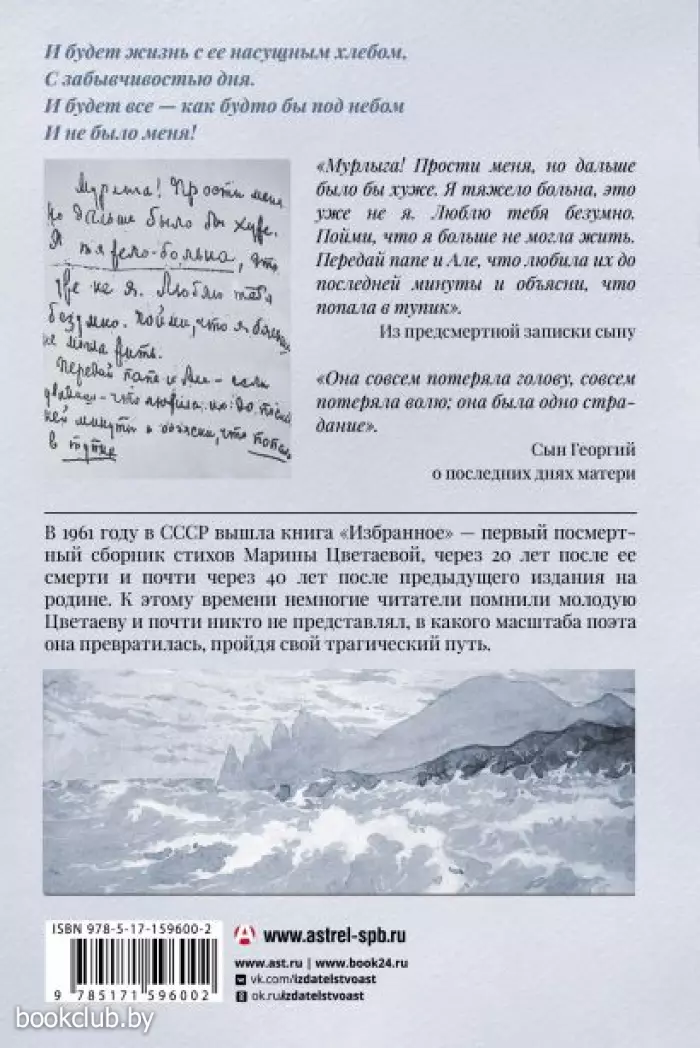 И будет жизнь с ее насущным хлебом,
С забывчивостью дня.
И будет все — как будто бы под небом
И не было меня!
Мурлыга! Прости меня
но дальше было бы хуже.
Я тяжело-больна, это
уже не я. Люблю тебя
безумно. Пойми, что я больше
не могла жить.
Передай папе и Але — если
увидишь — что любила их до послед
ней минуты и объясни, что попала
в тупик
«Мурлыга! Прости меня, но дальше
было бы хуже. Я тяжело больна, это
уже не я. Люблю тебя безумно.
Пойми, что я больше не могла жить.
Передай папе и Але, что любила их до
последней минуты и объясни, что
попала в тупик».
Из предсмертной записки сыну
«Она совсем потеряла голову, совсем
потеряла волю; она была одно стра-
дание».
Сын Георгий
о последних днях матери
В 1961 году в СССР вышла книга «Избранное» — первый посмерт-
ный сборник стихов Марины Цветаевой, через 20 лет после ее
смерти и почти через 40 лет после предыдущего издания на
родине. К этому времени немногие читатели помнили молодую
Цветаеву и почти никто не представлял, в какого масштаба поэта
она превратилась, пройдя свой трагический путь.
ISBN 978-5-17-159600-2
9 785171 596002
www.astrel-spb.ru
www.ast.ru | www.book24.ru
vk.com/izdatelstvoast
ok.ru/izdatelstvoast
bookclub.by